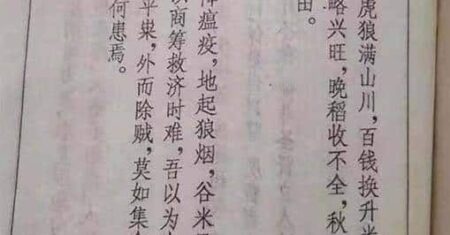 虎狼满山川，百钱换升米
略兴旺，晚稻收不全，秋
由。
降瘟疫，地起狼烟，谷米
以商筹救济时难，吾以为
平粜，外而除贼，莫如集
何患焉。